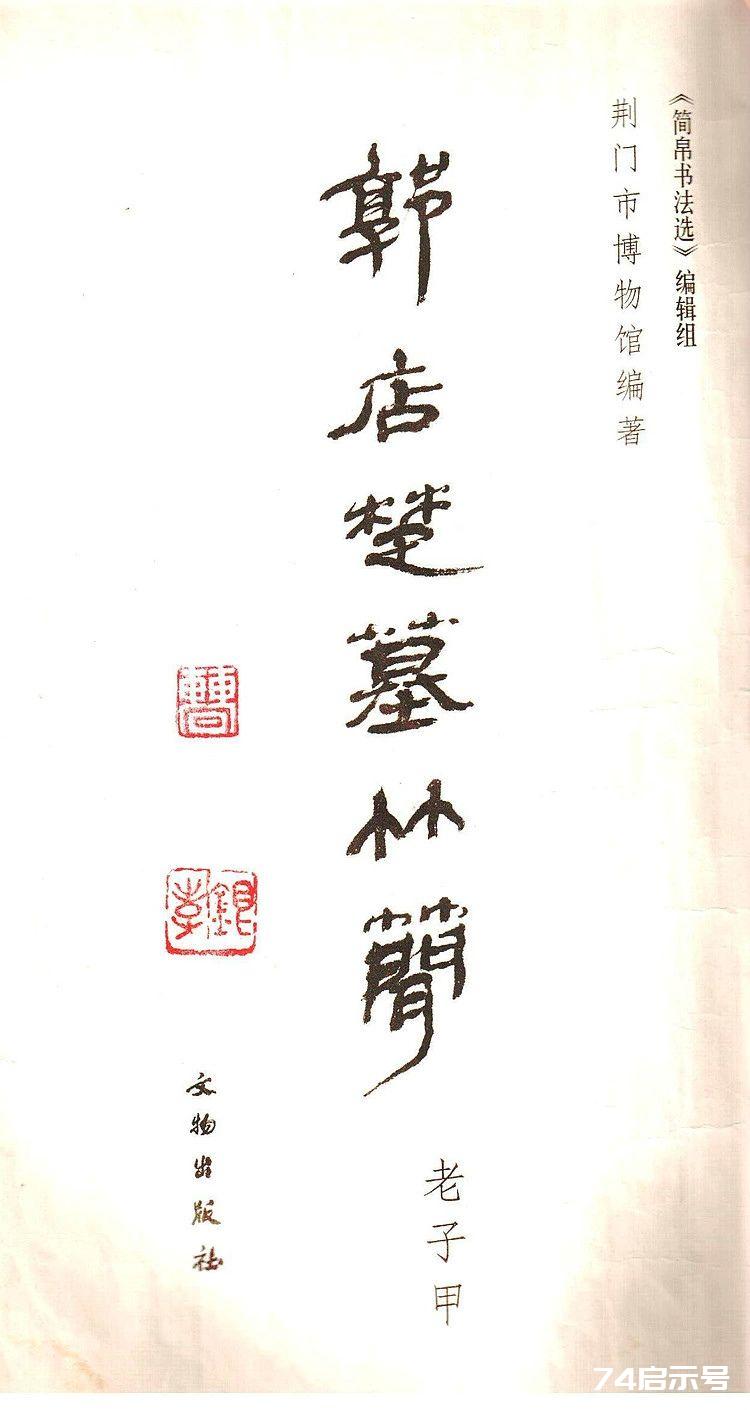 《简帛书法选》编辑组
荆门市博物馆编著
郭店楚墓竹简
老子甲
文物出版社
74启示号